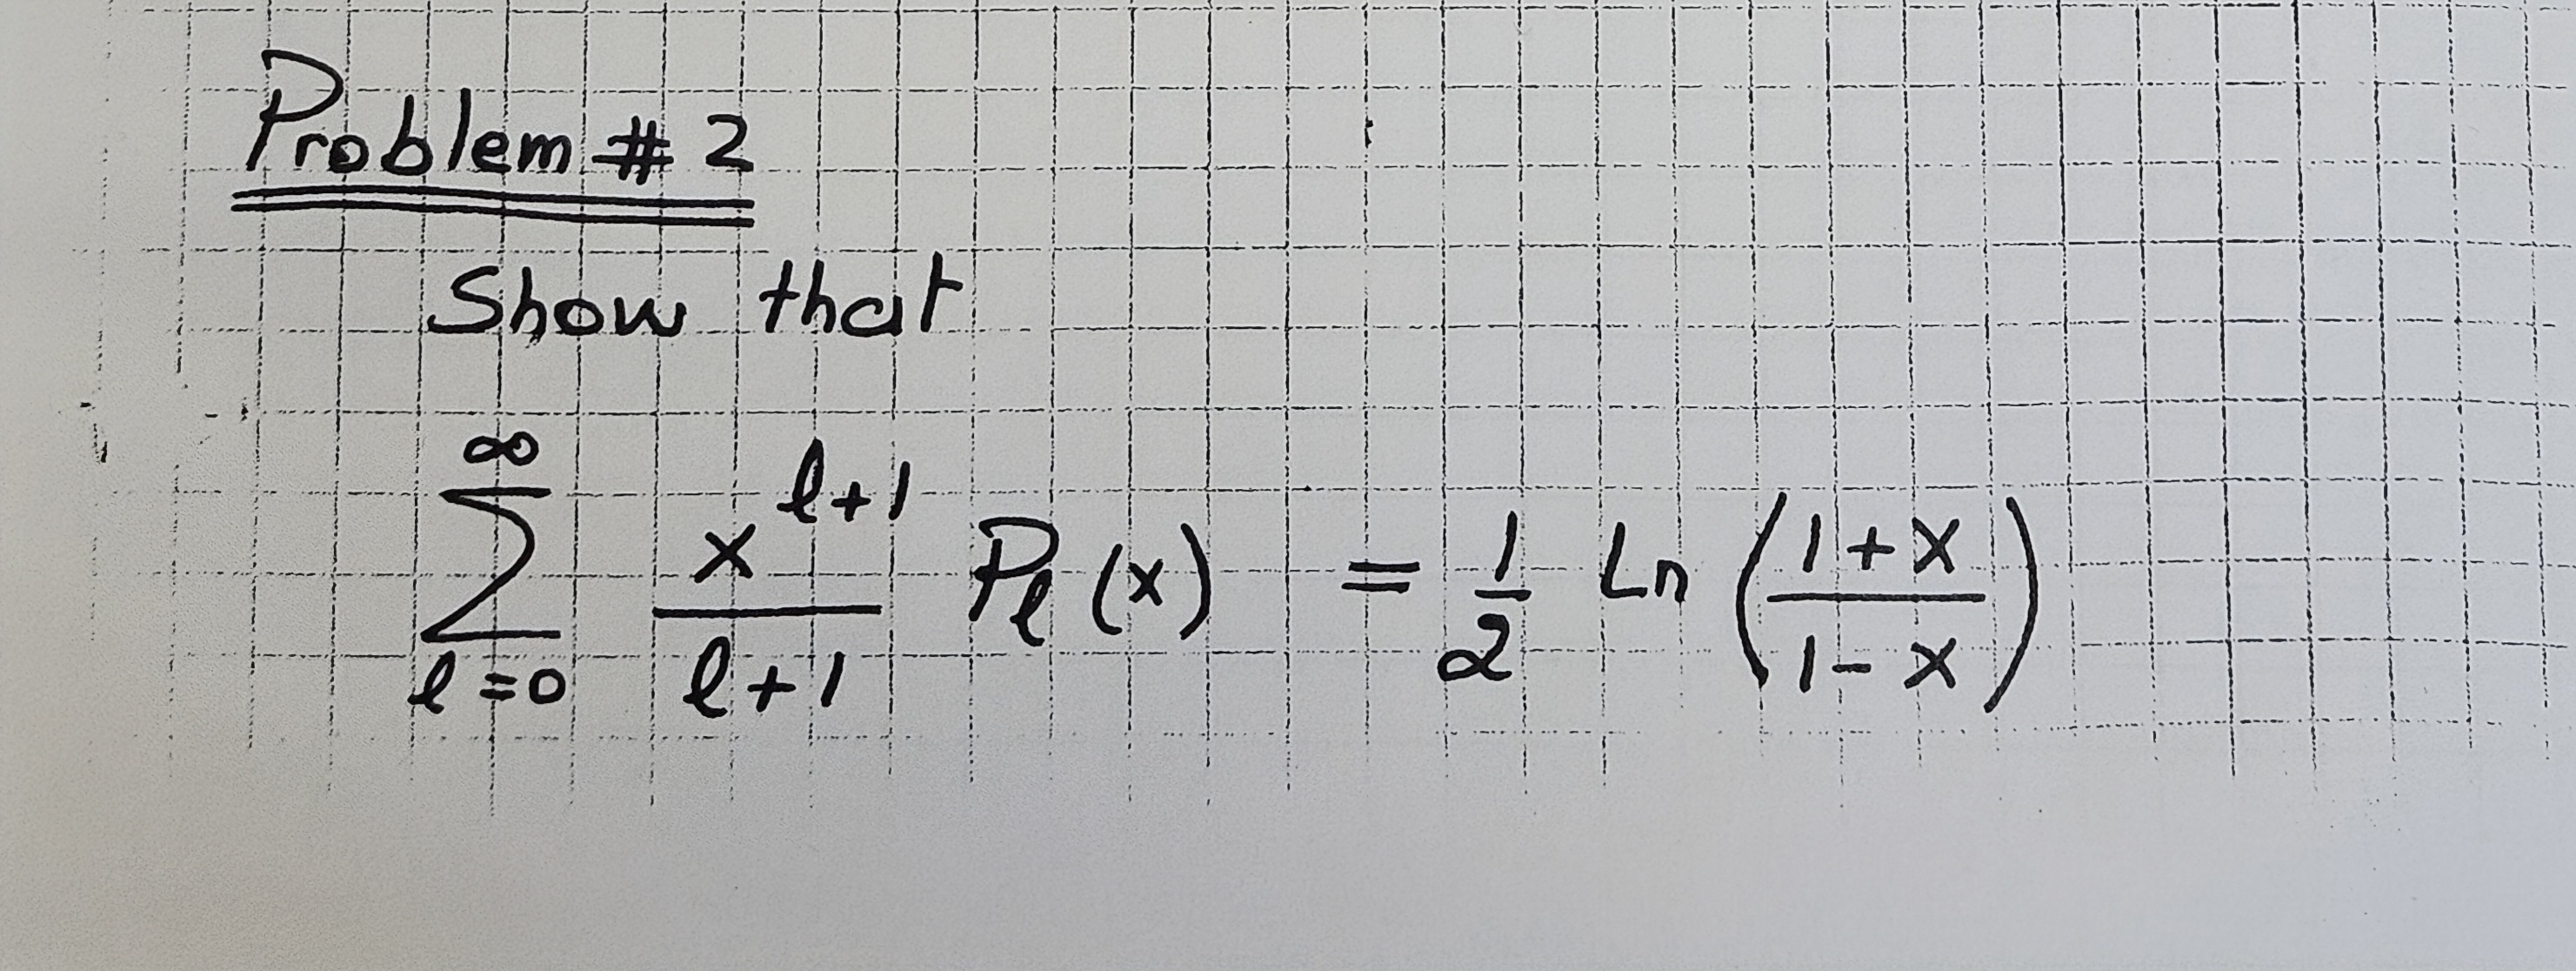 Problem # 2
Show that
$\sum_{l=0}^{\infty} \frac{x^{l+1}}{l+1} P_l(x) = \frac{1}{2} \operatorname{Ln} \left( \frac{1+x}{1-x} \right)$